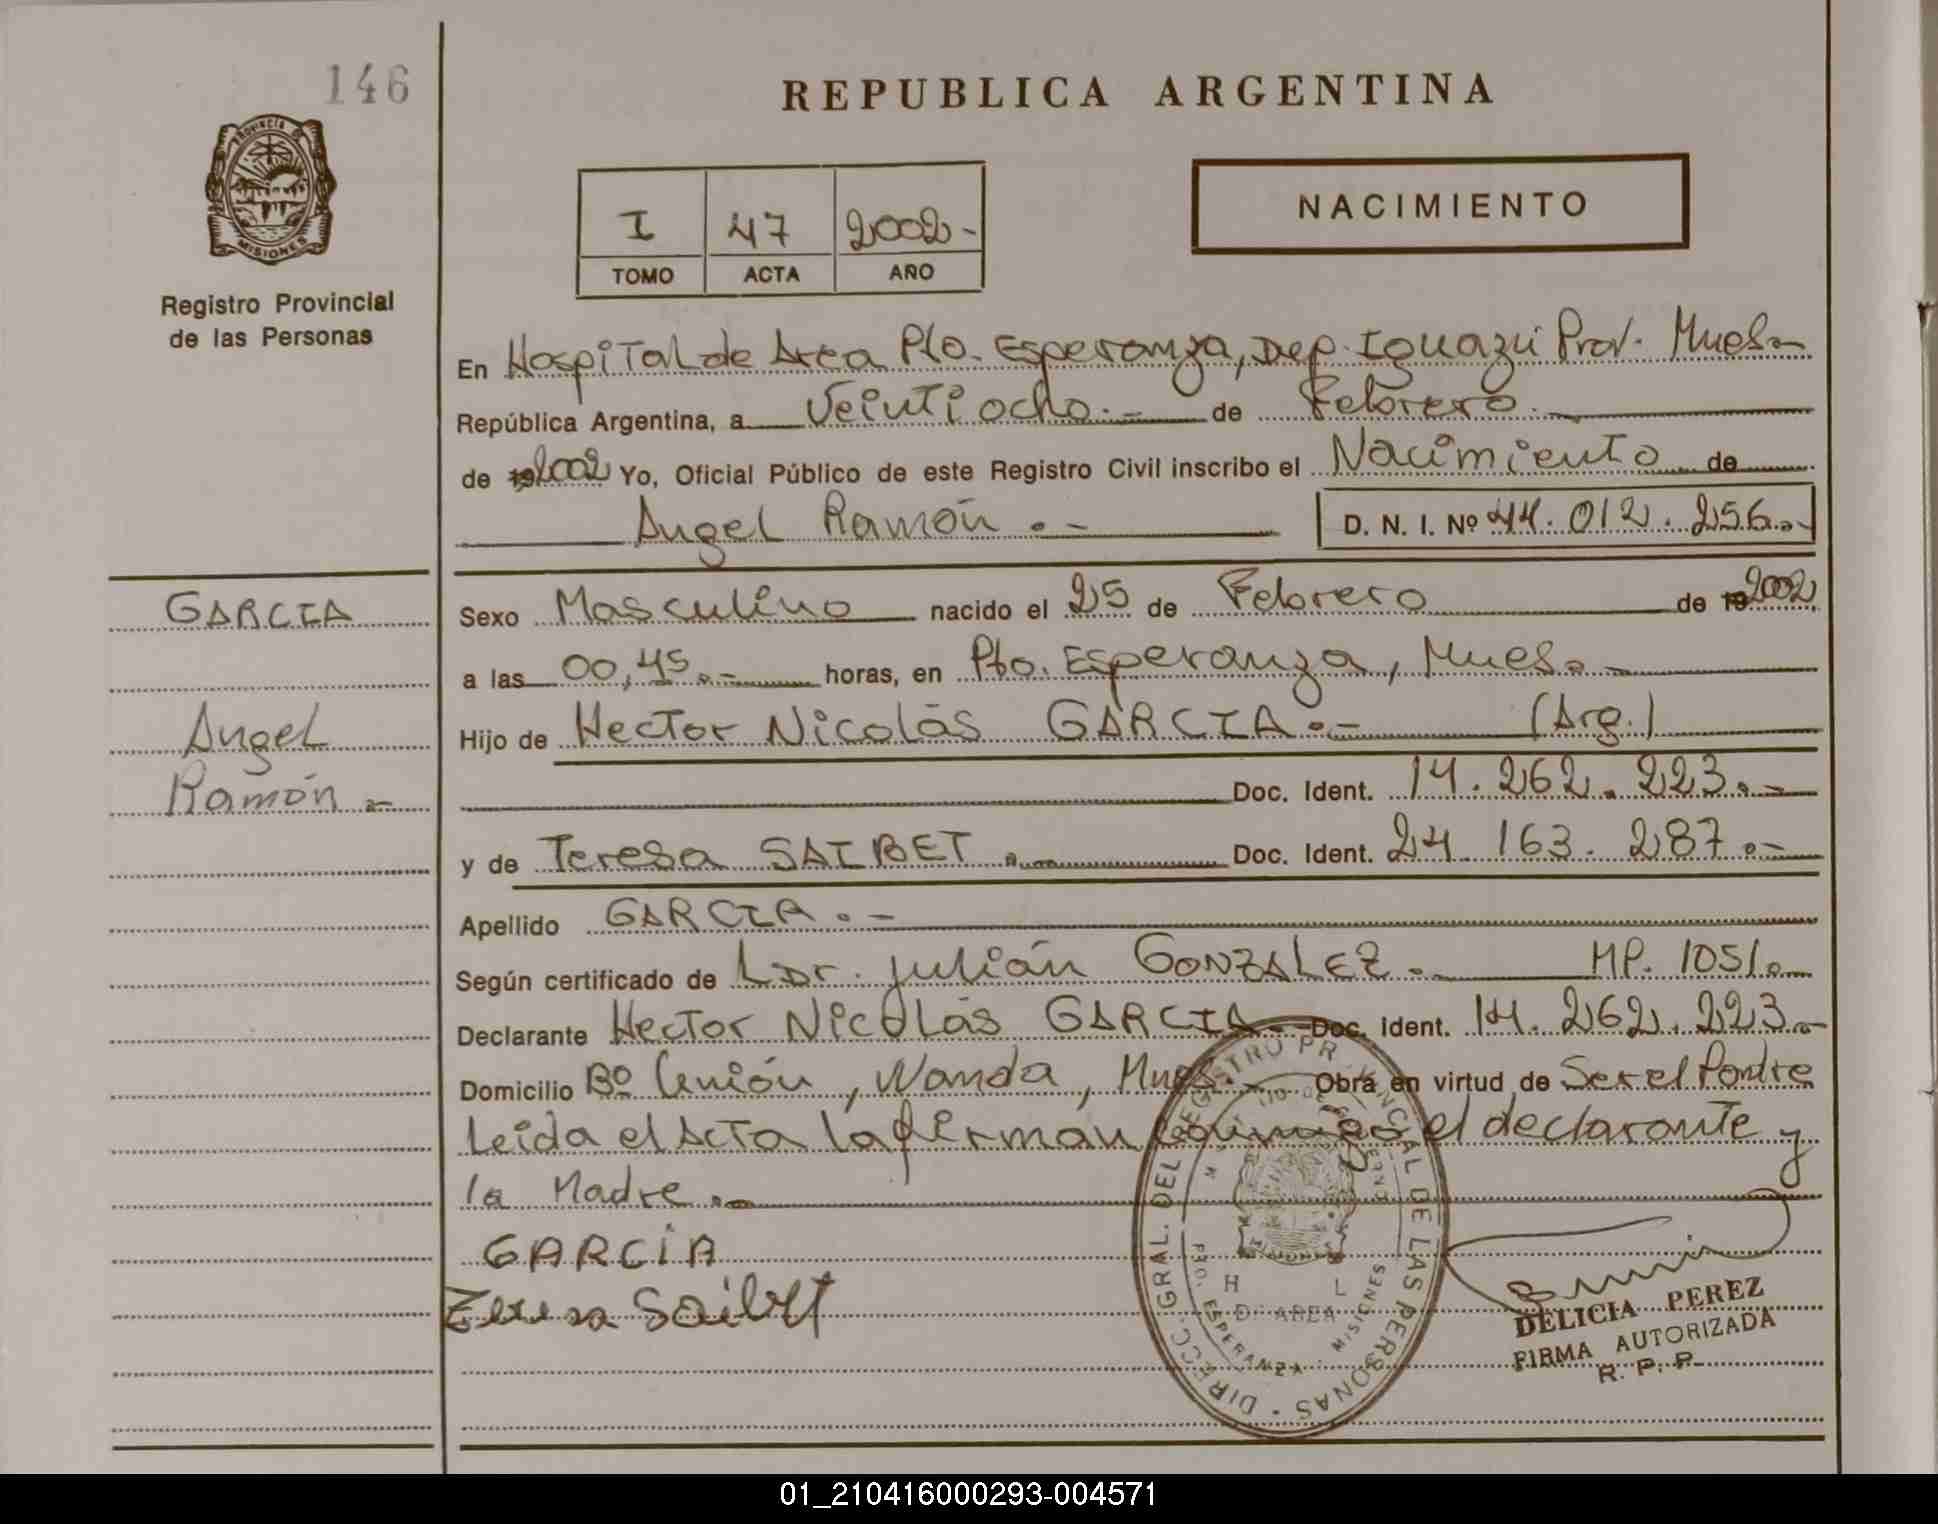 146
REPUBLICA ARGENTINA
PROVINCIA D
MISIONES
Registro Provincial
de las Personas
NACIMIENTO
I 47 2002-
TOMO ACTA AÑO
En Hospital de Area Pto. Esperanza, Dep. Iguazú Prov. Mnes.-
República Argentina, a Veintiocho.- de Febrero.-
de 192002 Yo, Oficial Público de este Registro Civil inscribo el Nacimiento de
Angel Ramón.- D. N. I. Nº 44.012.256.-
GARCIA
Sexo Masculino nacido el 25 de Febrero de 192002
a las 00,45.- horas, en Pto. Esperanza, Mnes.-
Angel
Hijo de Hector Nicolás GARCIA.- (Arg.)
Ramón.-
Doc. Ident. 14.262.223.-
y de Teresa SAIBET.- Doc. Ident. 24.163.287.-
Apellido GARCIA.-
Según certificado de Ldr. Julián GONZALEZ.- MP. 1051.-
Declarante Hector Nicolás GARCIA.- Doc. Ident. 14.262.223.-
Domicilio Bº Unión, Wanda, Mnes.- Obra en virtud de Ser el Padre
Leída el Acta la firman conmigo el declarante y
la Madre.-
GARCIA
Teresa Saibet
DIRECC. GRAL. DEL REGISTRO PROVINCIAL DE LAS PERSONAS
H L
D. AREA
PTO. ESPERANZA MISIONES
DELICIA PEREZ
FIRMA AUTORIZADA
R. P. P.
01_210416000293-004571